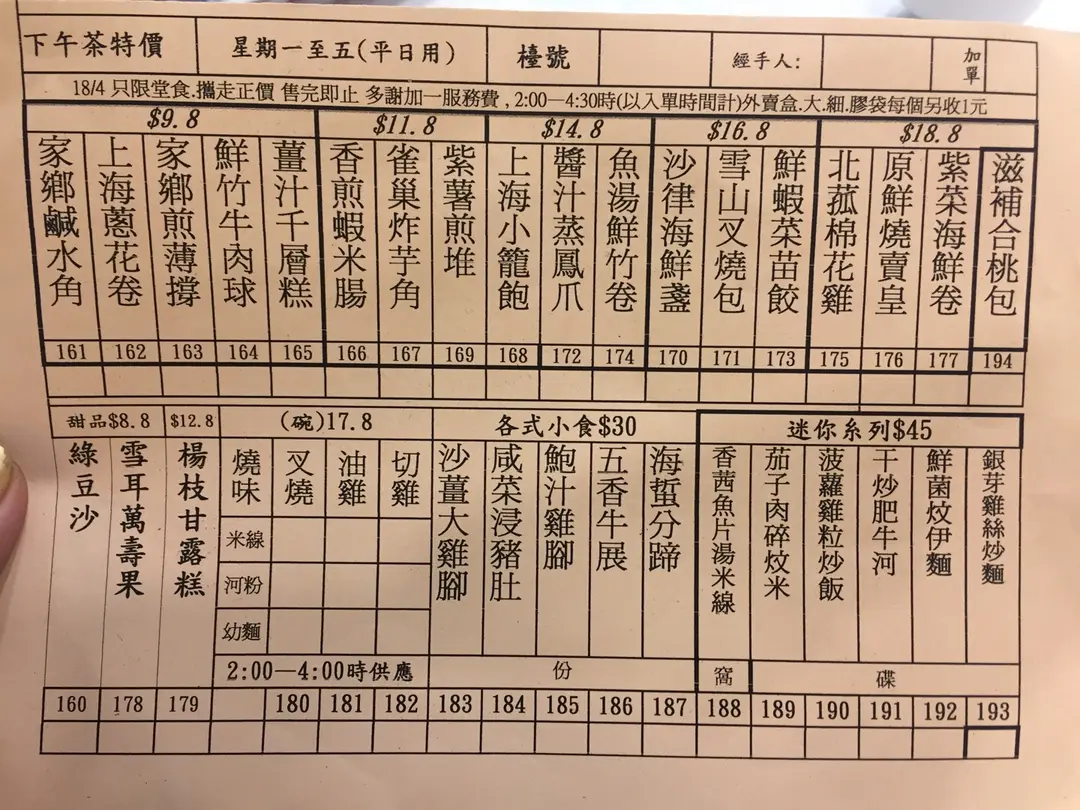 下午茶特價 星期一至五(平日用) 檯號 經手人: 加單
18/4 只限堂食.攜走正價 售完即止 多謝加一服務費,2:00—4:30時(以入單時間計)外賣盒.大.細.膠袋每個另收1元
$9.8 $11.8 $14.8 $16.8 $18.8
家鄉鹹水角
上海蔥花卷
家鄉煎薄撐
鮮竹牛肉球
薑汁千層糕
香煎蝦米腸
雀巢炸芋角
紫薯煎堆
上海小籠飽
醬汁蒸鳳爪
魚湯鮮竹卷
沙律海鮮盞
雪山叉燒包
鮮蝦菜苗餃
北菇棉花雞
原鮮燒賣皇
紫菜海鮮卷
滋補合桃包
161 162 163 164 165 166 167 169 168 172 174 170 171 173 175 176 177 194
甜品$8.8 $12.8 (碗)17.8 各式小食$30 迷你系列$45
綠豆沙
雪耳萬壽果
楊枝甘露糕
燒味
叉燒
油雞
切雞
米線
河粉
幼麵
沙薑大雞腳
咸菜浸豬肚
鮑汁雞腳
五香牛展
海蜇分蹄
香茜魚片湯米線
茄子肉碎炆米
菠蘿雞粒炒飯
干炒肥牛河
鮮菌炆伊麵
銀芽雞絲炒麵
2:00—4:00時供應 份 窩 碟
160 178 179 180 181 182 183 184 185 186 187 188 189 190 191 192 193